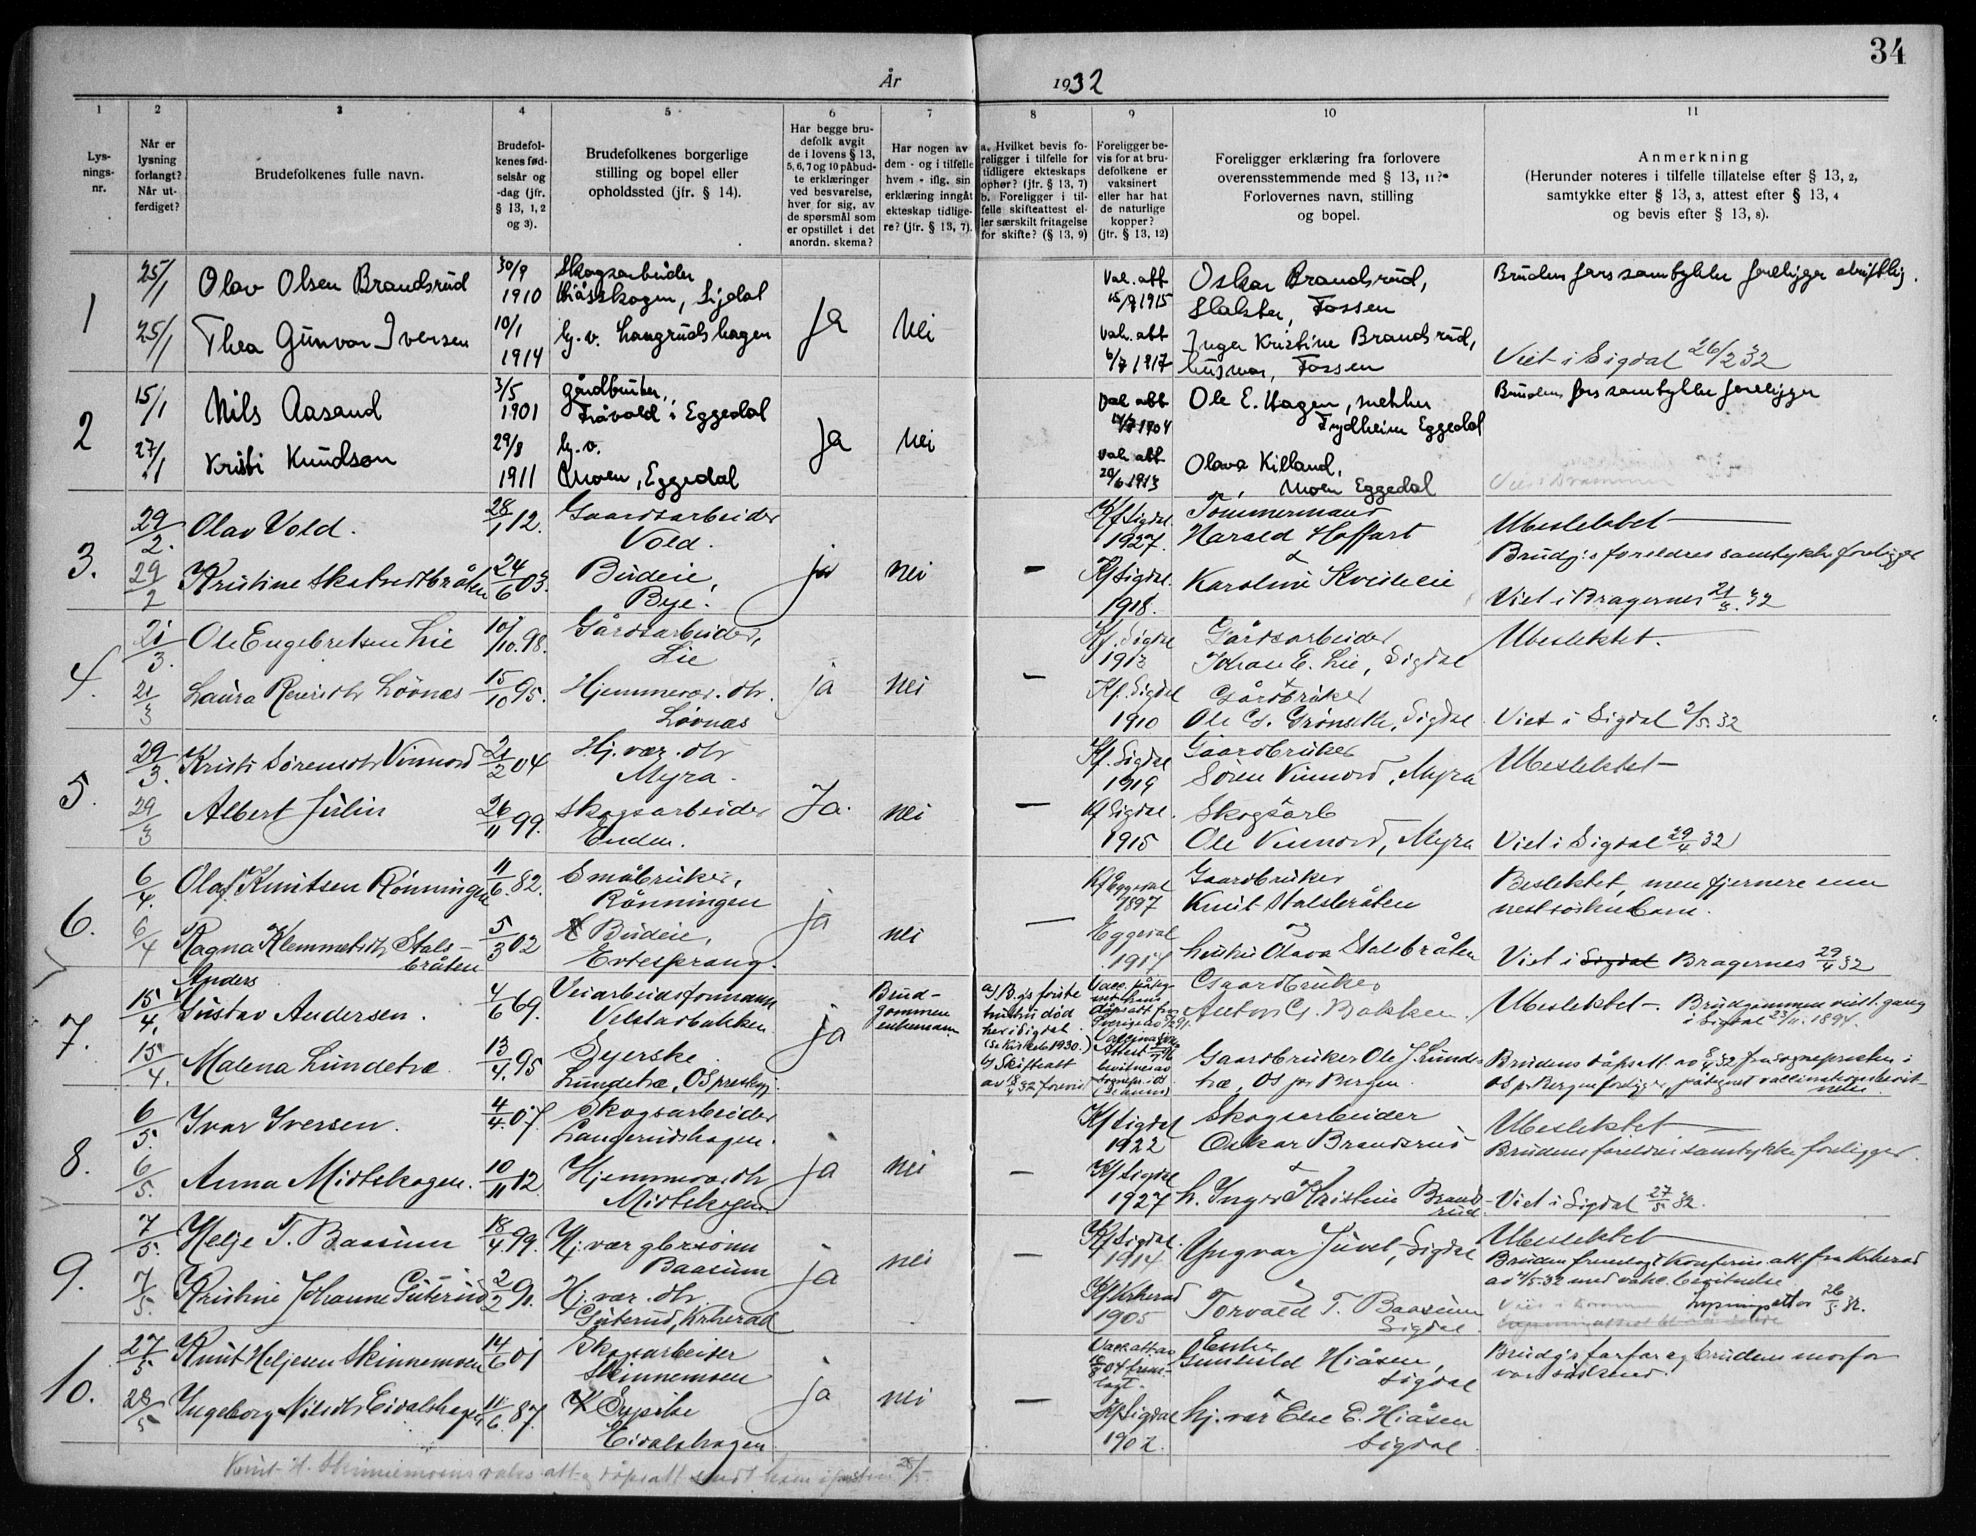 34
År 1932
1 2 3 4 5 6 7 8 9 10 11
Lys-
nings-
nr.
Når er
lysning
forlangt?
Når ut-
ferdiget?
Brudefolkenes fulle navn.
Brudefol-
kenes fød-
selsår og
-dag (jfr.
§ 13, 1, 2
og 3).
Brudefolkenes borgerlige
stilling og bopel eller
opholdssted (jfr. § 14).
Har begge bru-
defolk avgit
de i lovens § 13,
5, 6, 7 og 10 påbud-
te erklæringer
ved besvarelse,
hver for sig, av
de spørsmål som
er opstillet i det
anordn. skema?
Har nogen av
dem - og i tilfelle
hvem - iflg. sin
erklæring inngåt
ekteskap tidlige-
re? (jfr. § 13, 7).
a. Hvilket bevis fo-
religger i tilfelle for
tidligere ekteskaps
ophør? (jfr. § 13, 7)
b. Foreligger i til-
felle skifteattest el-
ler særskilt fritagelse
for skifte? (§ 13, 9)
Foreligger be-
vis for at bru-
defolkene er
vaksinert
eller har hat
de naturlige
kopper?
(jfr. § 13, 12)
Foreligger erklæring fra forlovere
overensstemmende med § 13, 11?
Forlovernes navn, stilling
og bopel.
Anmerkning
(Herunder noteres i tilfelle tillatelse efter § 13, 2,
samtykke efter § 13, 3, attest efter § 13, 4
og bevis efter § 13, 8).
1
25/1 Olav Olsen Brandsrud 30/9 1910 Skogsarbeider
Hiåsskogen, Sigdal
Val. att 15/9 1915 Oskar Brandsrud,
Fossen
Brudens fars samtykke foreligger skriftlig.
25/1 Thea Gunvor Iversen 10/1 1914 hj. v. Langrudshagen ja nei
Val. att 6/7 1917 Inger Kristine Brandsrud,
husmor, Fossen
Viet i Sigdal 26/2 32
2
15/1 Nils Aasand 3/5 1901 gårdbruker,
Tråvold i Eggedal
Val. att 1904 Ole E. Hagen,
Frydheim Eggedal
Brudens fars samtykke foreligger
27/1 Kristi Knudson 29/8 1911 hj. v.
Moen, Eggedal ja nei
Val. att 20/6 1913 Olava Killand,
Moen Eggedal
3.
29/2. Olav Vold. 28/1 12. Gaardsarbeider
Vold.
Kf Sigdal 1927. Tømmermand
Harald Hoffart
Ubeslektet
29/2 Kristine Skatvedtbråten 24/6 03. Budeie,
Bye. ja nei —
Kf Sigdal 1918. Karoline Kvisleie
Brudg's foreldres samtykke foreligger
Viet i Bragernes 21/3. 32
4.
21/3. Ole Engebretsen Lie 10/10. 98. Gårdsarbeider,
Lie
Kf. Sigdal 1913 Gårdsarbeider
Johan E. Lie, Sigdal
Ubeslektet.
21/3 Laura Reiersdtr Løvnæs 15/10 95. Hjemmevær. dtr.
Løvnæs ja nei —
Kf. Sigdal 1910 Gårdbruker
Ole G. Grønseth, Sigdal
Viet i Sigdal 2/5. 32
5.
29/3. Kristi Sørensdtr Vinnord 21/2 04 Hj. vær. dtr
Myra.
Kf. Sigdal 1919 Gaardbruker
Søren Vinnord, Myra
Ubeslektet
29/3 Albert Julin 26/11 99. Skogsarbeider
Enden. Ja. nei —
Kf Sigdal 1915 Skogsarb
Ole Vinnord, Myra
Viet i Sigdal 29/4 32
6.
6/4. Olaf Knutsen Rønningen 11/6. 82. Småbruker,
Rønningen
Kf Eggedal 1897 Gaardbruker
Knut Stalsbråten
Beslektet, men fjernere enn
nestsøskenbarn.
6/4 Ragna Klemmetsdtr Stals-
bråten 5/3 02 Budeie,
Ertesprang. ja nei —
Eggedal 1917 husm Olava Stalsbråten
Viet i Sigdal Bragernes 29/4 32
7.
15/4. Anders
Gustav Andersen. 4/6 69. Veiarbeidsformann
Velstadbakken.
Brud-
gommen
enkemann
a) B.gs første
hustru død
her i Sigdal.
(Se kirkeb 1930.)
b) Skifteatt
Gaardbruker
Anton G. Bakken.
Ubeslektet. Brudgommen viet 1. gang
i Sigdal 23/11. 1894.
15/4. Malena Lundetræ 13/4. 95 Syerske.
Lundetræ, Os pr Bergen ja
Gaardbruker Ole J. Lunde-
træ, Os pr Bergen.
Brudens dåpsatt. av 8/4 32 fra sognepresten i
Os pr Bergen foreligger, påtegnet vaccinationsbevit-
nelse.
8.
6/5. Ivar Iversen. 4/4. 07 Skogsarbeider
Langerudshagen.
Kf Sigdal 1922 Skogsarbeider
Oskar Brandsrud
Ubeslektet
6/5. Anna Midtskogen. 10/11 12. Hjemmevær. dtr
Midtskogen ja nei —
Kf Sigdal 1927 h. Inger Kristine Brands-
rud.
Brudens foreldres samtykke foreligger.
Viet i Sigdal 27/5. 32.
9.
7/5. Helje T. Baasum 18/4 99. Hj. vær gbr sønn
Baasum
Kf Sigdal. 1914 Yngvar Juvel, Sigdal
Ubeslektet
7/5. Kristine Johanne Guterud 2/2 91. Hj. vær. dtr
Guterud, Krherad ja nei —
Kf Krherad 1905 Torvald T. Baasum
Sigdal
Bruden fremlagt konfirm. att. fra Krherad
av 4/5 32 med vakc. bevitnelse.
Lysningsattest 26/5 32.
10.
27/5 Knut Heljesen Skinnemoen 14/6 01 Skogsarbeider
Skinnemoen
Enke
Gunhild Hiåsen,
Sigdal
Brudg's farfar og brudens morfar
var søskend.
28/5 Ingeborg Nilsdtr Eidalshagen 11/6 87. Syerske
Eidalshagen ja nei —
Kf Sigdal 1902. hj. vær Else E. Hiåsen
Sigdal.
Knut H. Skinnemoens vaks. att. og dåpsatt sendt ham 28/5.